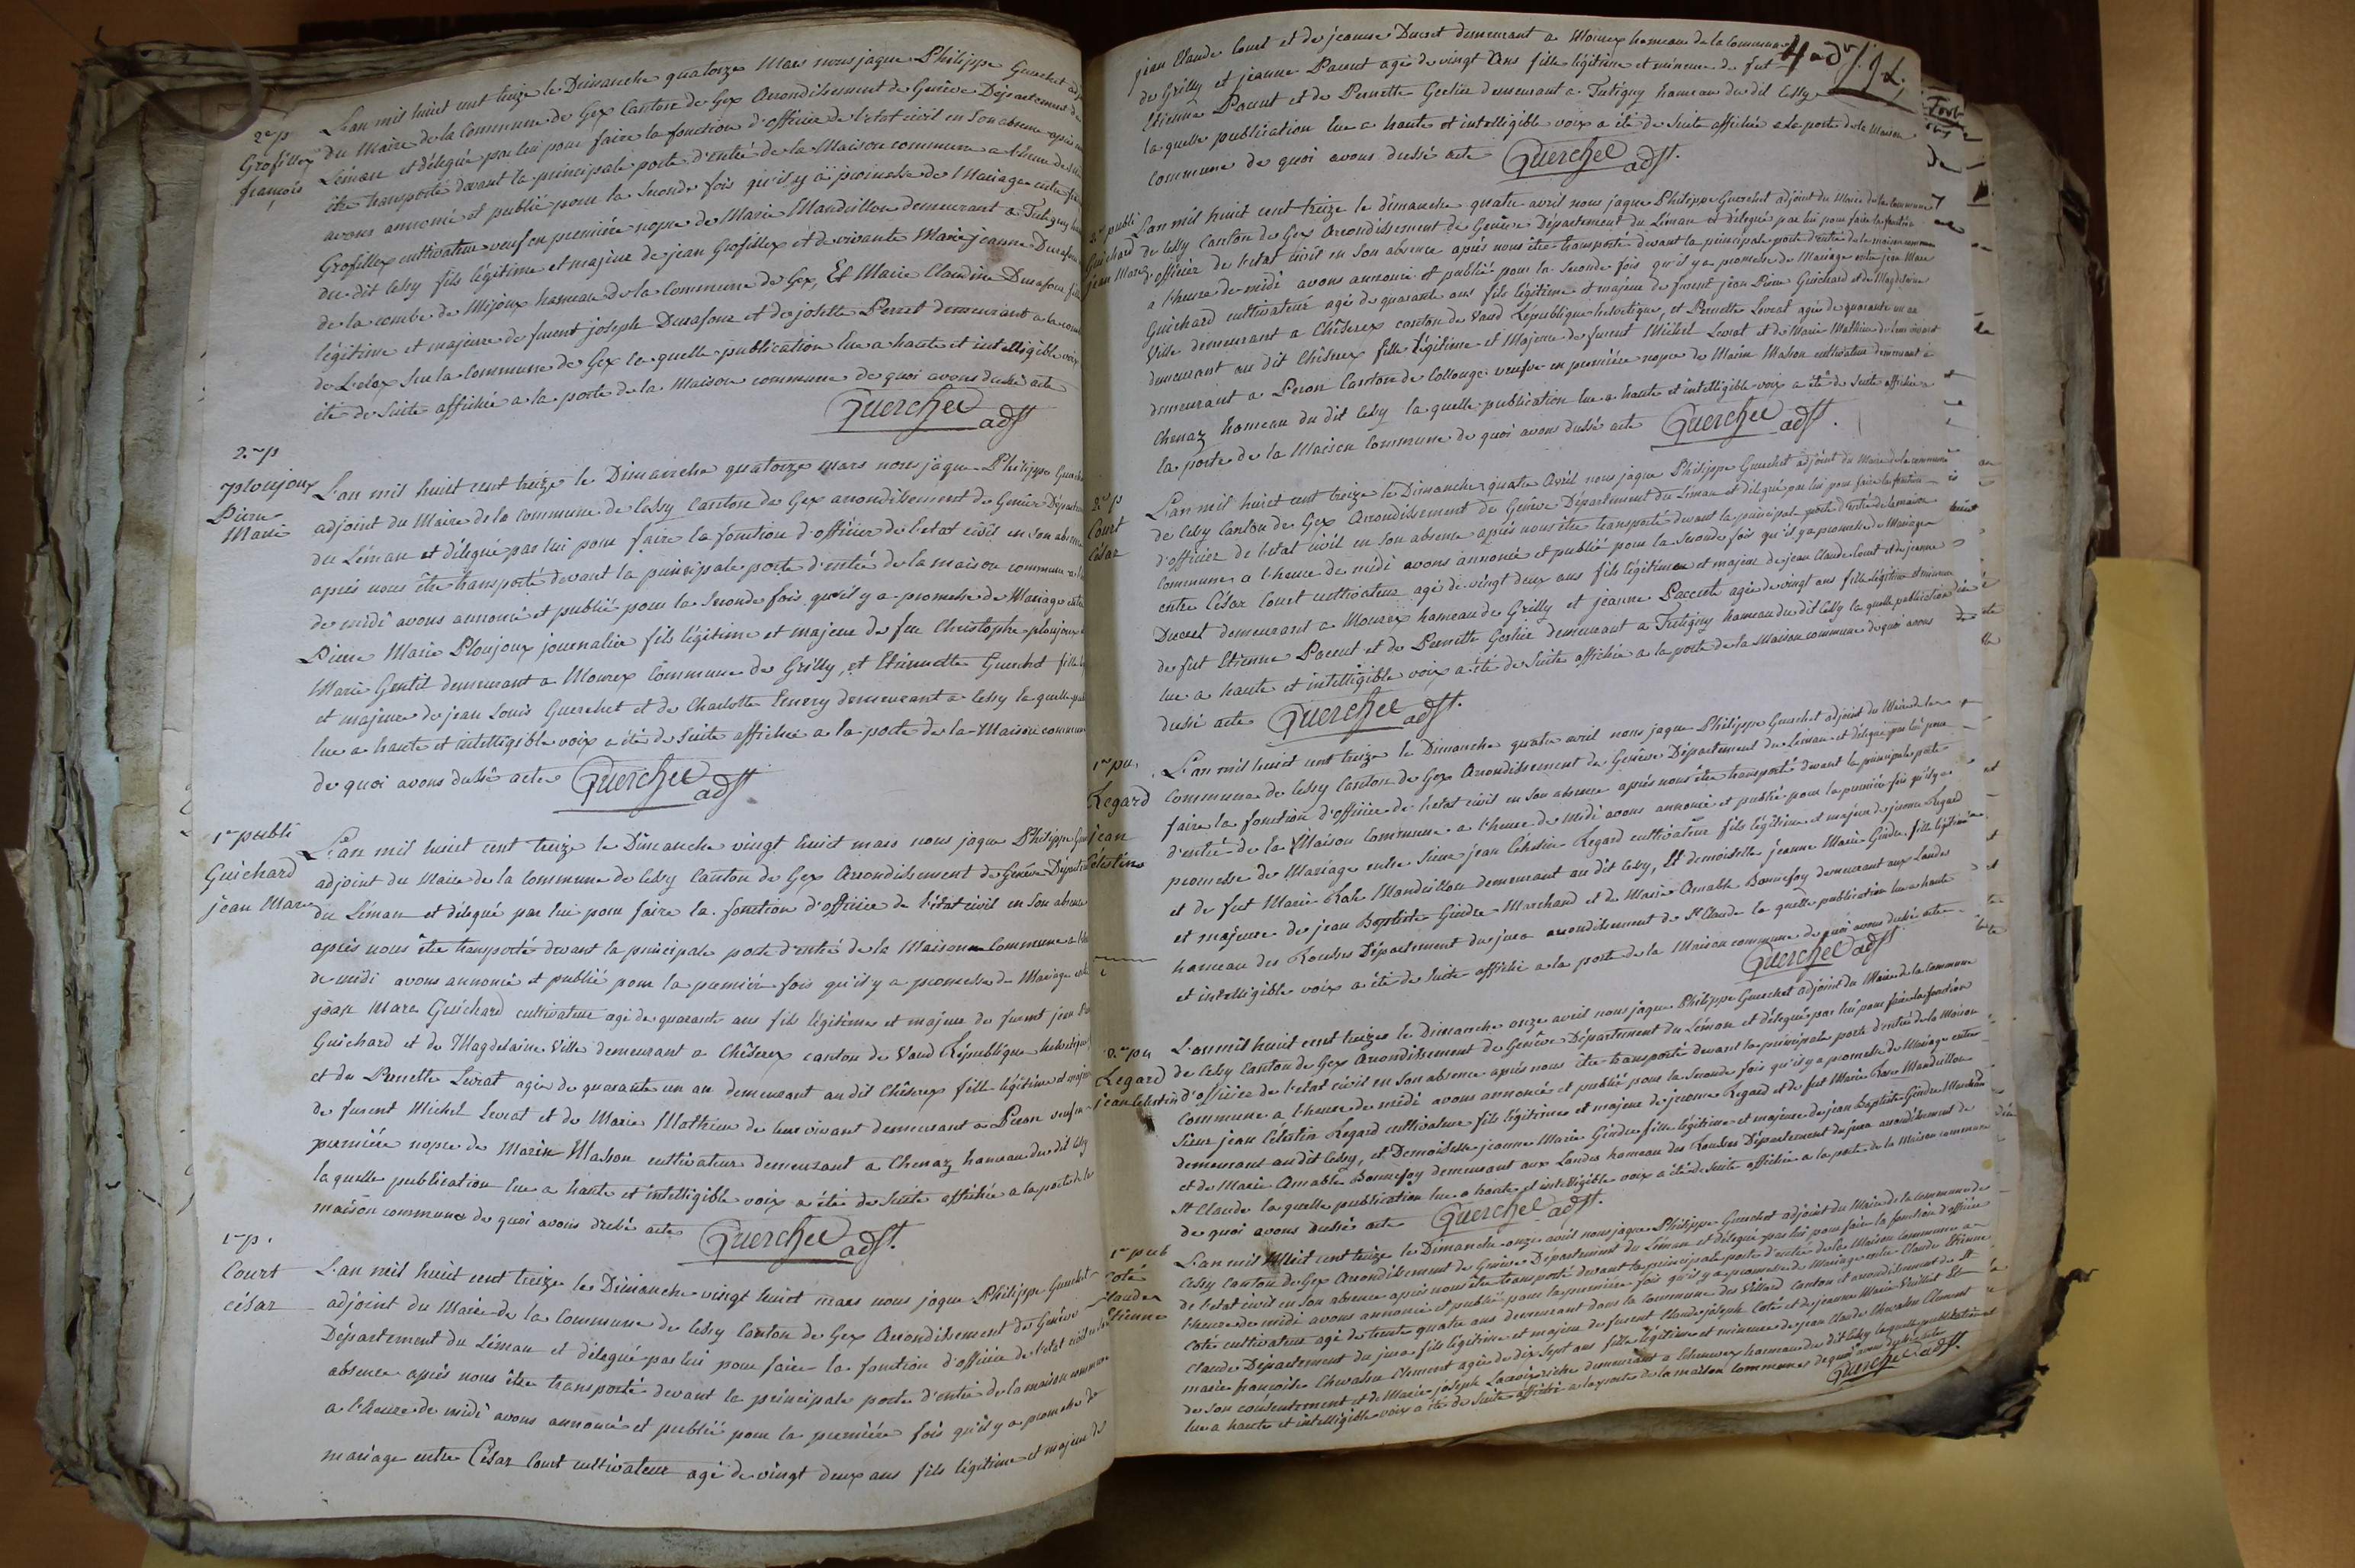 2.e p
Grofillex
françois
L'an mil huit cent treize le Dimanche quatorze Mars nous jaque Philippe Guerchet
du Maire de la Commune de Gex Canton de Gex Arrondissement de Genève Département du
Léman et délégué par lui pour faire la fonction d'officier de l'etat civil en son absence après
être transporté devant la principale porte d'entré de la Maison commune a l'heure de
avons annoncé et publié pour la seconde fois qu'il y a promesse de Mariage entre
Grofillex cultivateur veuf en première nopce de Marie Mandrillon demeurant a Tutegny
du dit Cessy fils légitime et majeur de jean Grofillex et de vivante Marie jeanne Durafour
de la combe de Mijoux hameau de la Commune de Gex, Et Marie Claudine Durafour
légitime et majeure de furent joseph Durafour et de josette Perret demeurant a la
de Lelex sur la Commune de Gex la quelle publication lue a haute et intelligible voix
été de suite affichée a la porte de la Maison commune de quoi avons dussé acte
Guerchet adjt
2.e p
Ploujoux
Pierre
Marie
L'an mil huit cent treize le Dimanche quatorze mars nous jaque Philippe
adjoint du Maire de la Commune de Cessy Canton de Gex arrondissement de Genève
du Léman et délégué par lui pour faire la fonction d'officier de l'etat civil en son absence
après nous être transporté devant la principale porte d'entré de la maison commune
de midi avons annoncé et publié pour la seconde fois qu'il y a promesse de Mariage entre
Pierre Marie Ploujoux journalier fils légitime et majeur de feu Christophe ploujoux
Marie Gentil demeurant a Mourex Commune de Grilly, et Etiennette Guerchet fille
et majeure de jean Louis Guerchet et de Charlotte Emery demeurant a Cessy la quelle
lue a haute et intelligible voix a été de suite affichée a la porte de la Maison commune
de quoi avons dussé acte Guerchet adjt
1.re publi
Guichard
jean Marc
L'an mil huit cent treize le Dimanche vingt huit mars nous jaque Philippe
adjoint du Maire de la Commune de Cessy Canton de Gex Arrondissement de Genève
du Léman et délégué par lui pour faire la fonction d'officier de l'etat civil en son absence
après nous être transporté devant la principale porte d'entré de la Maison Commune
de midi avons annoncé et publié pour la première fois qu'il y a promesse de Mariage entre
jean Marc Guichard cultivateur agé de quarante ans fils légitime et majeur de furent jean
Guichard et de Magdelaine Ville demeurant a Chêserex canton de Vaud République helvetique
et de Pernette Levrat agée de quarante un an demeurant au dit Chêserex fille légitime et
de furent Michel Levrat et de Marie Mathieu de leur vivant demeurant a Péron
première nopce de Marin Masson cultivateur demeurant a Chenaz hameau du dit Cessy
la quelle publication lue a haute et intelligible voix a été de suite affichée a la porte de la
maison commune de quoi avons dussé acte Guerchet adjt.
1.re p.
Court
césar
L'an mil huit cent treize le Dimanche vingt huit mars nous jaque Philippe Guerchet
adjoint du Maire de la Commune de Cessy Canton de Gex Arrondissement de Genève
Département du Léman et délégué par lui pour faire la fonction d'officier de l'etat civil en son
absence après nous être transporté devant la principale porte d'entré de la maison commune
a l'heure de midi avons annoncé et publié pour la première fois qu'il y a promesse de
mariage entre César Court cultivateur agé de vingt deux ans fils légitime et majeur de
jean Claude Court et de jeanne Ducret demeurant a Mourex hameau de la Commune
de Grilly et jeanne Pacout agée de vingt Ans fille légitime et mineure de fut
Etienne Pacout et de Pernette Gerlier demeurant a Tutegny hameau du dit Cessy
la quelle publication lue a haute et intelligible voix a été de suite affichée a la porte de la Maison
commune de quoi avons dussé acte Guerchet adjt.
2.e publi
Guichard
jean Marc
L'an mil huit cent treize le dimanche quatre avril nous jaque Philippe Guerchet adjoint du Maire de la Commune
de Cessy Canton de Gex Arrondissement de Genève Département du Léman et délégué par lui pour faire la fonction
d'officier de l'etat civil en son absence après nous être transporté devant la principale porte d'entré de la maison commune
a l'heure de midi avons annoncé et publié pour la seconde fois qu'il y a promesse de Mariage entre jean Marc
Guichard cultivateur agé de quarante ans fils légitime et majeur de furent jean Pierre Guichard et de Magdelaine
Ville demeurant a Chêserex canton de Vaud République helvetique, et Pernette Levrat agée de quarante un an
demeurant au dit Chêserex fille légitime et Majeure de furent Michel Levrat et de Marie Mathieu de leur vivant
demeurant a Péron Canton de Collonge veufve en première nopce de Marin Masson cultivateur demeurant a
Chenaz hameau du dit Cessy la quelle publication lue a haute et intelligible voix a été de suite affichée a
la porte de la Maison Commune de quoi avons dussé acte Guerchet adjt.
2.e p
Court
César
L'an mil huit cent treize le Dimanche quatre Avril nous jaque Philippe Guerchet adjoint du Maire de la commune
de Cessy Canton de Gex Arrondissement de Genève Département du Léman et délégué par lui pour faire la fonction
d'officier de l'etat civil en son absence après nous être transporté devant la principale porte d'entré de la maison
Commune a l'heure de midi avons annoncé et publié pour la seconde fois qu'il y a promesse de Mariage
entre César Court cultivateur agé de vingt deux ans fils légitime et majeur de jean Claude Court et de jeanne
Ducret demeurant a Mourex hameau de Grilly et jeanne Pacout agée de vingt ans fille légitime et mineure
de fut Etienne Pacout et de Pernette Gerlier demeurant a Tutegny hameau du dit Cessy la quelle publication
lue a haute et intelligible voix a été de suite affichée a la porte de la Maison commune de quoi avons
dussé acte Guerchet adjt.
1.re pu.
Regard
jean
Célestin
L'an mil huit cent treize le Dimanche quatre avril nous jaque Philippe Guerchet adjoint du Maire de la
Commune de Cessy Canton de Gex Arrondissement de Genève Département du Léman et délégué par lui pour
faire la fonction d'officier de l'etat civil en son absence après nous être transporté devant la principale porte
d'entré de la Maison Commune a l'heure de midi avons annoncé et publié pour la première fois qu'il y a
promesse de Mariage entre Sieur jean Célestin Regard cultivateur fils légitime et majeur de jerome Regard
et de fut Marie Rose Mandrillon demeurant au dit Cessy, Et demoiselle jeanne Marie Gindre fille légitime
et majeure de jean Baptiste Gindre Marchand et de Marie Amable Bonnefoy demeurant aux Landes
hameau des Rousses Département du jura arrondissement de St Claude la quelle publication lue a haute
et intelligible voix a été de suite affichée a la porte de la Maison commune de quoi avons dussé acte
Guerchet adjt
2.e pu
Regard
jean Celestin
L'an mil huit cent treize le Dimanche onze avril nous jaque Philippe Guerchet adjoint du Maire de la Commune
de Cessy Canton de Gex Arrondissement de Genève Département du Léman et délégué par lui pour faire la fonction
d'officier de l'etat civil en son absence après nous être transporté devant la principale porte d'entré de la Maison
Commune a l'heure de midi avons annoncé et publié pour la seconde fois qu'il y a promesse de Mariage entre
Sieur jean Célestin Regard cultivateur fils légitime et majeur de jerome Regard et de fut Marie Rose Mandrillon
demeurant au dit Cessy, et Demoiselle jeanne Marie Gindre fille légitime et majeure de jean Baptiste Gindre Marchand
et de Marie Amable Bonnefoy demeurant aux Landes hameau des Rousses Département du jura arrondissement de
St Claude la quelle publication lue a haute et intelligible voix a été de suite affichée a la porte de la Maison commune
de quoi avons dussé acte Guerchet adjt.
1.re pub
Coté
Claude
Etienne
L'an mil huit cent treize le Dimanche onze avril nous jaque Philippe Guerchet adjoint du Maire de la commune de
Cessy Canton de Gex Arrondissement de Genève Département du Léman et délégué par lui pour faire la fonction d'officier
de l'etat civil en son absence après nous être transporté devant la principale porte d'entré de la Maison Commune a
l'heure de midi avons annoncé et publié pour la première fois qu'il y a promesse de Mariage entre Claude Etienne
Coté cultivateur agé de trente quatre ans demeurant dans la Commune des Villard Canton et arrondissement de St
Claude Département du jura fils légitime et majeur de furent Claude joseph Coté et de jeanne Marie Et
marie françoise Clement agée de dix sept ans fille légitime et mineure de jean Claude Clement
de son consentement et de Marie joseph Lacroix demeurant a hameau du dit Cessy la quelle publication
lue a haute et intelligible voix a été de suite affichée a la porte de la maison Commune de quoi avons dussé acte
Guerchet adjt.